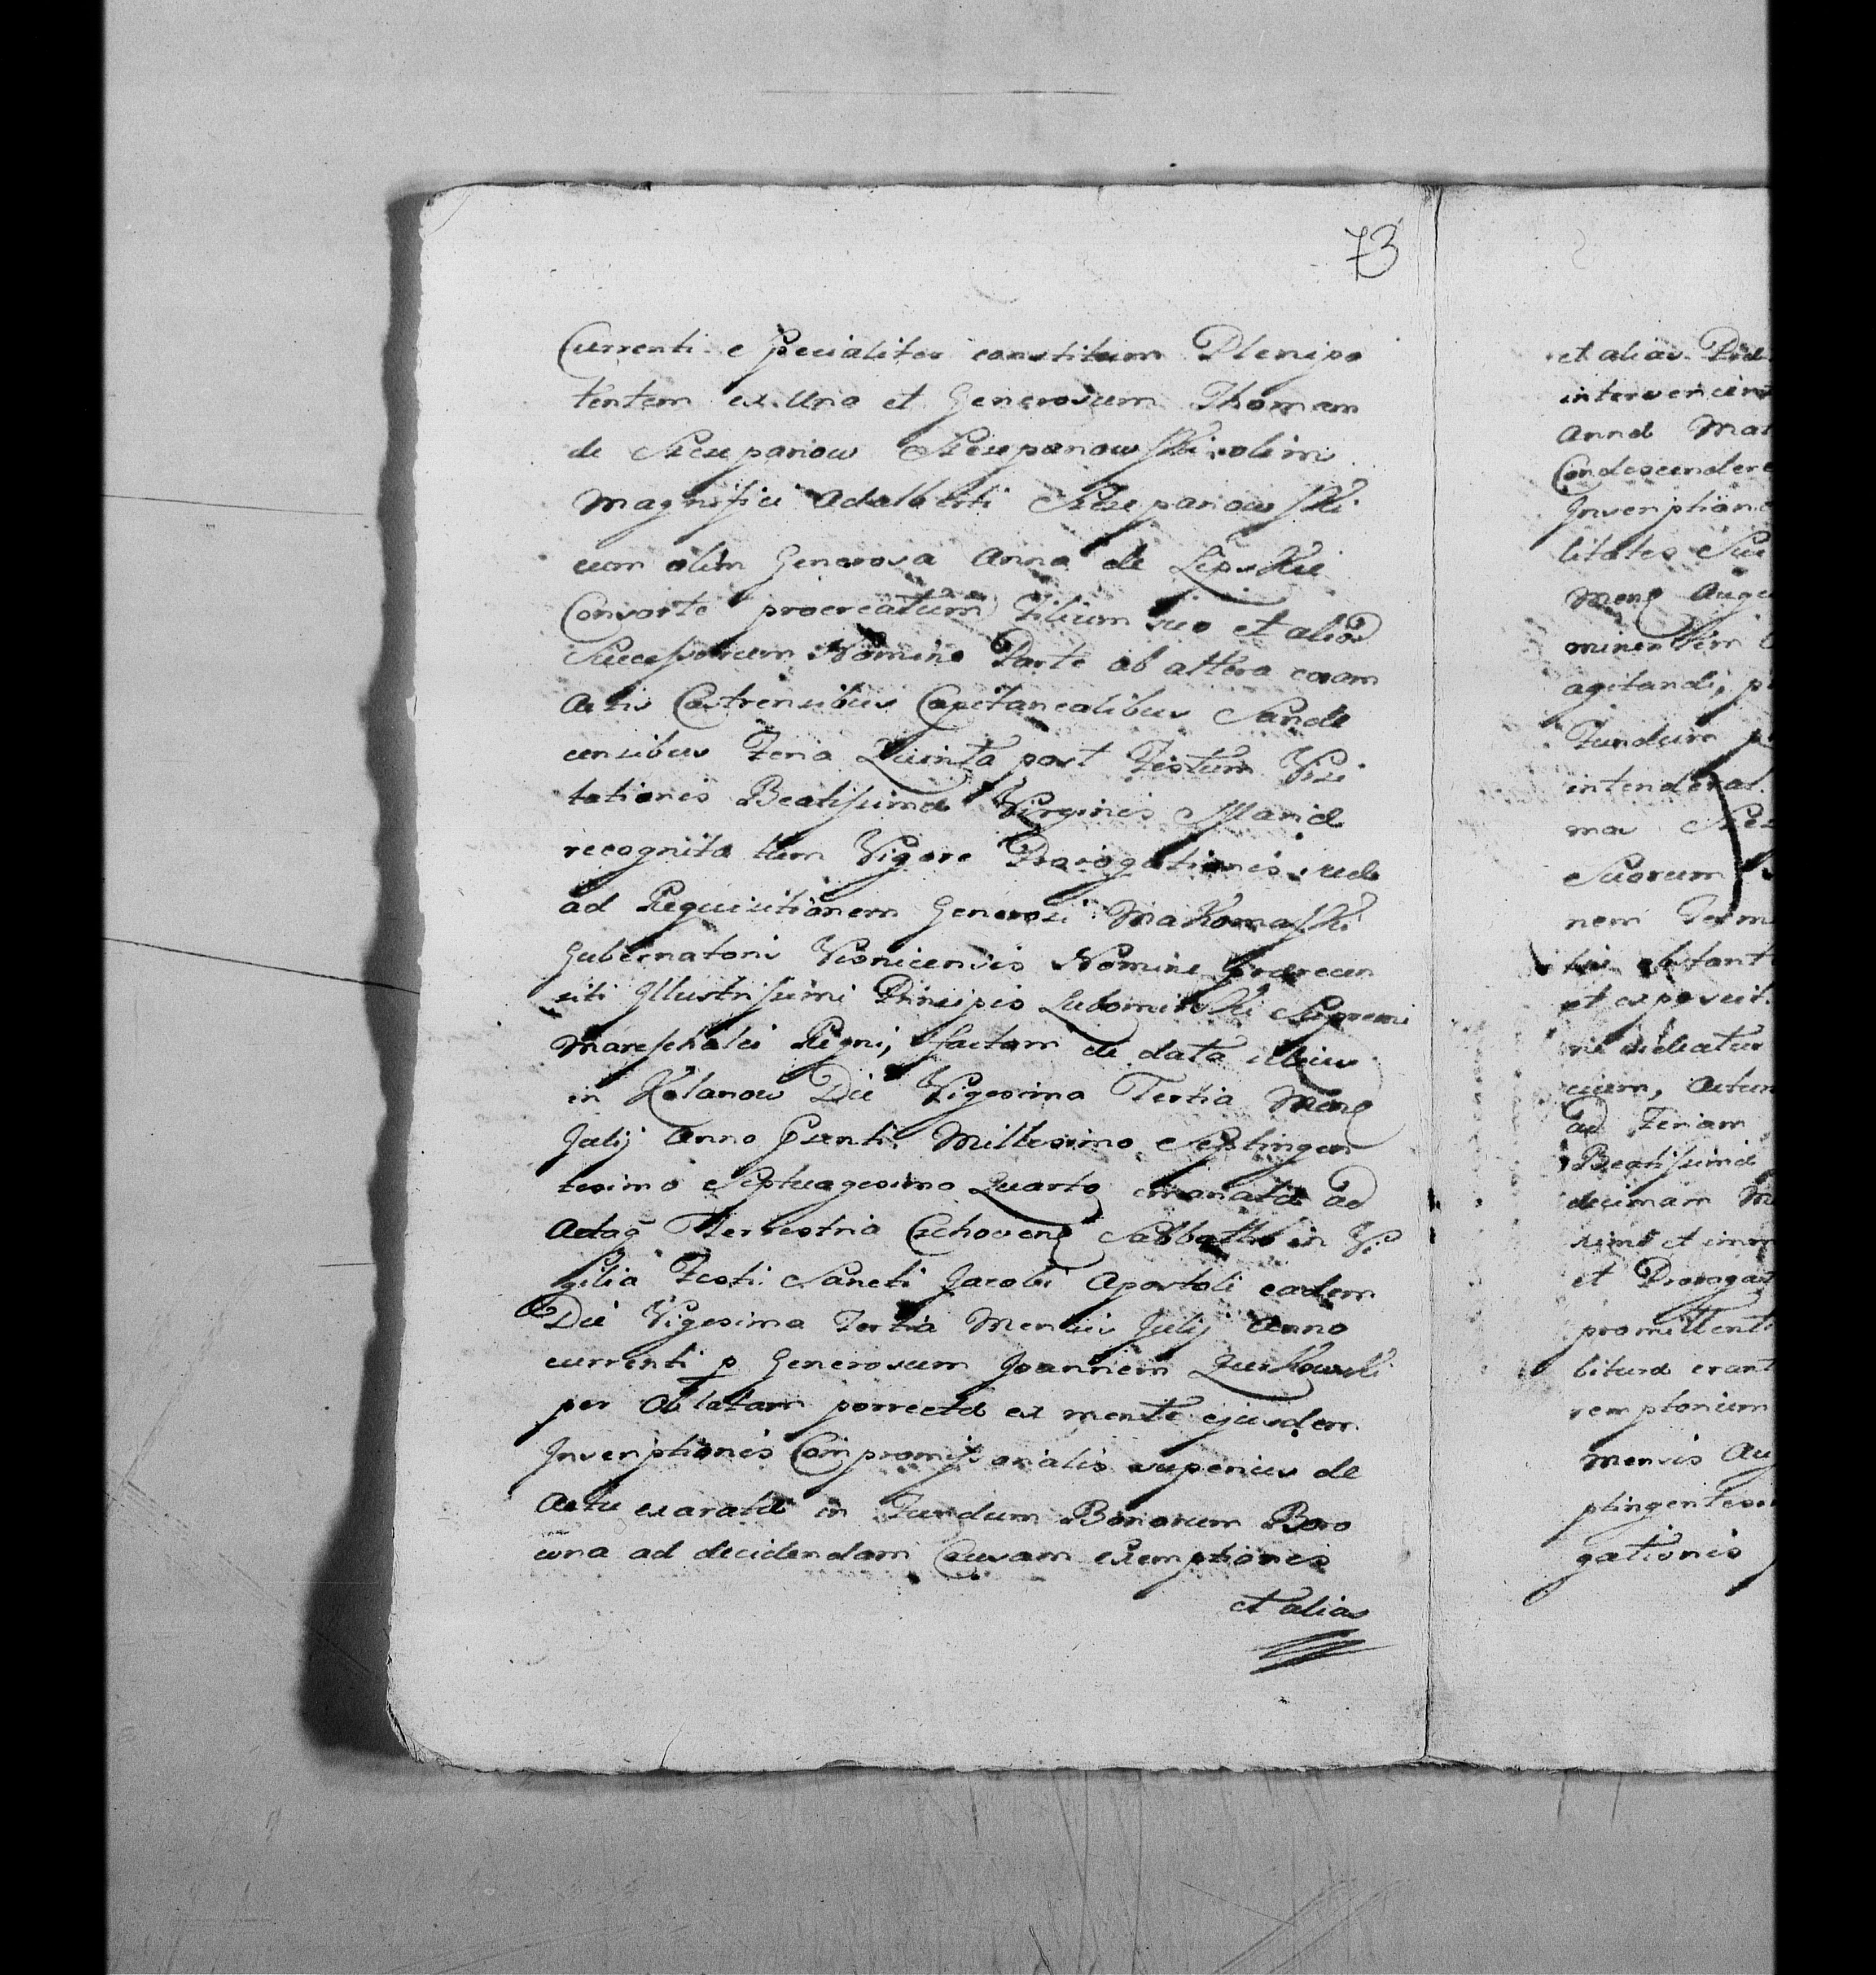 73
Currenti specialiter constitum Plenipo
tentem ex Una et Generosum Thomam
de Szczepanow Szczepanowski olim
Magnifici Adalberti Szczepanowski
cum olim Generosa Anna de Lipskie
Consorte procreatum Filium suo et alior
Successorum Nomine Parte ab altera coram
Actis Castrensibus Capitanealibus Sande
censibus Feria Quinta post Festum Visi
tationis Beatissimæ Virginis Mariæ
recognita tum Vigore Prorogationis
ad Requisitionem Generosi Makomaski
Gubernatoris Visnicensis Nomine præcen
siti Illustrissimi Principis Lubomirski Supremi
Mareschalci Regni, factam de data illius
in Kolanow Die Vigesima Tertia Mens
Julij Anno Psenti Millesimo Septingen
tesimo Septuagesimo Quarto emanatæ ad
Acta Terrestria Czchovens Sabbatho in Vi
gilia Festi Sancti Jacobi Apostoli eadem
Die Vigesima Tertia Mensis Julij Anno
currenti p Generosum Joannem
per Oblatam porrectæ ex mente ejusdem
Inscriptionis Compromissorialis superius de
Actu exaratæ in Fundum Bonorum Boro
wna ad decidendam Causam exemptionis
et alias
et alias
intervenien
Annæ Mat
Condescendere
Inscription
litates Sue
Mens Augu
minentem
agitandi, p
Fundum p
intenderat
ma
Suorum
nem Term
et exposuit
ne videatur
cum, Actum
ad Feriam
Beatissimæ
decimam M
et Prorogat
promittent
bituræ erant
remptorium
Mensis Aug
ptingentesi
gationis